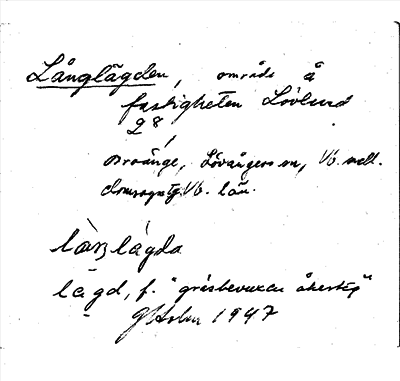 Långlägden, område å
fastigheten Lövlund
2 8
Broänge, Lövångers sn, Vb. mell.
domsagas tg. Vb. län.
làŋlágda
lägd, f. "gräsbevuxen åkerteg"
1947